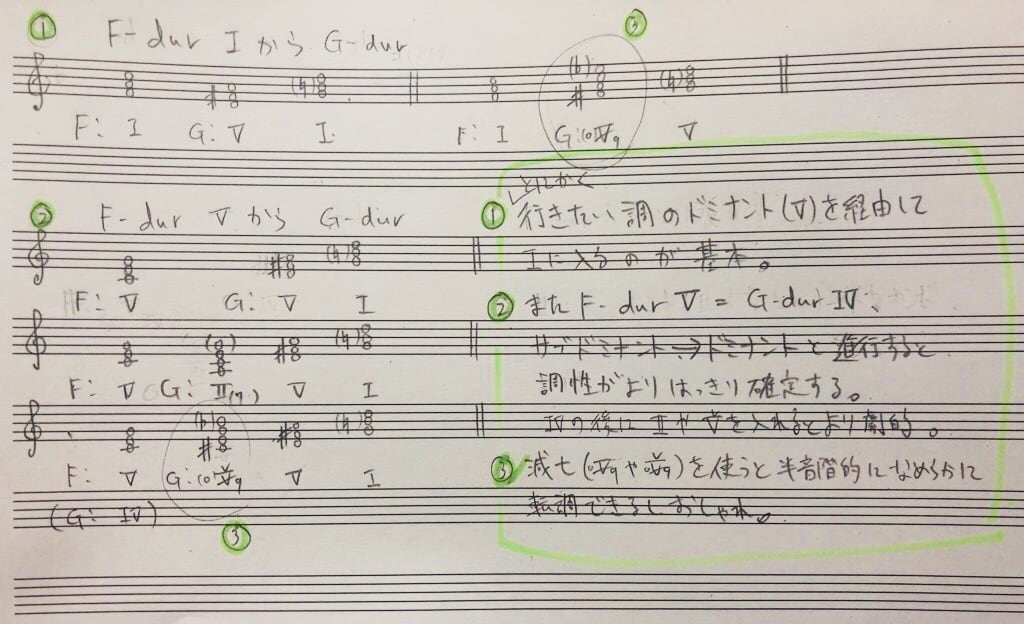 ①
F-dur I から G-dur
③
F: I G: V I
F: I V
② F-dur V から G-dur
F: V G: V I
F: V G: II(7.) V I
F: V V I
(G: IV)
③
とにかく
① 行きたい調のドミナント(V)を経由して
Iに入るのが基本。
② また F-dur V = G-dur IV、
サブドミナント→ドミナントと進行すると
調性がよりはっきり確定する。
IVの後に を入れるとより劇的。
③ 減七( や )を使うと半音階的になめらかに
転調できるしおしゃれ。